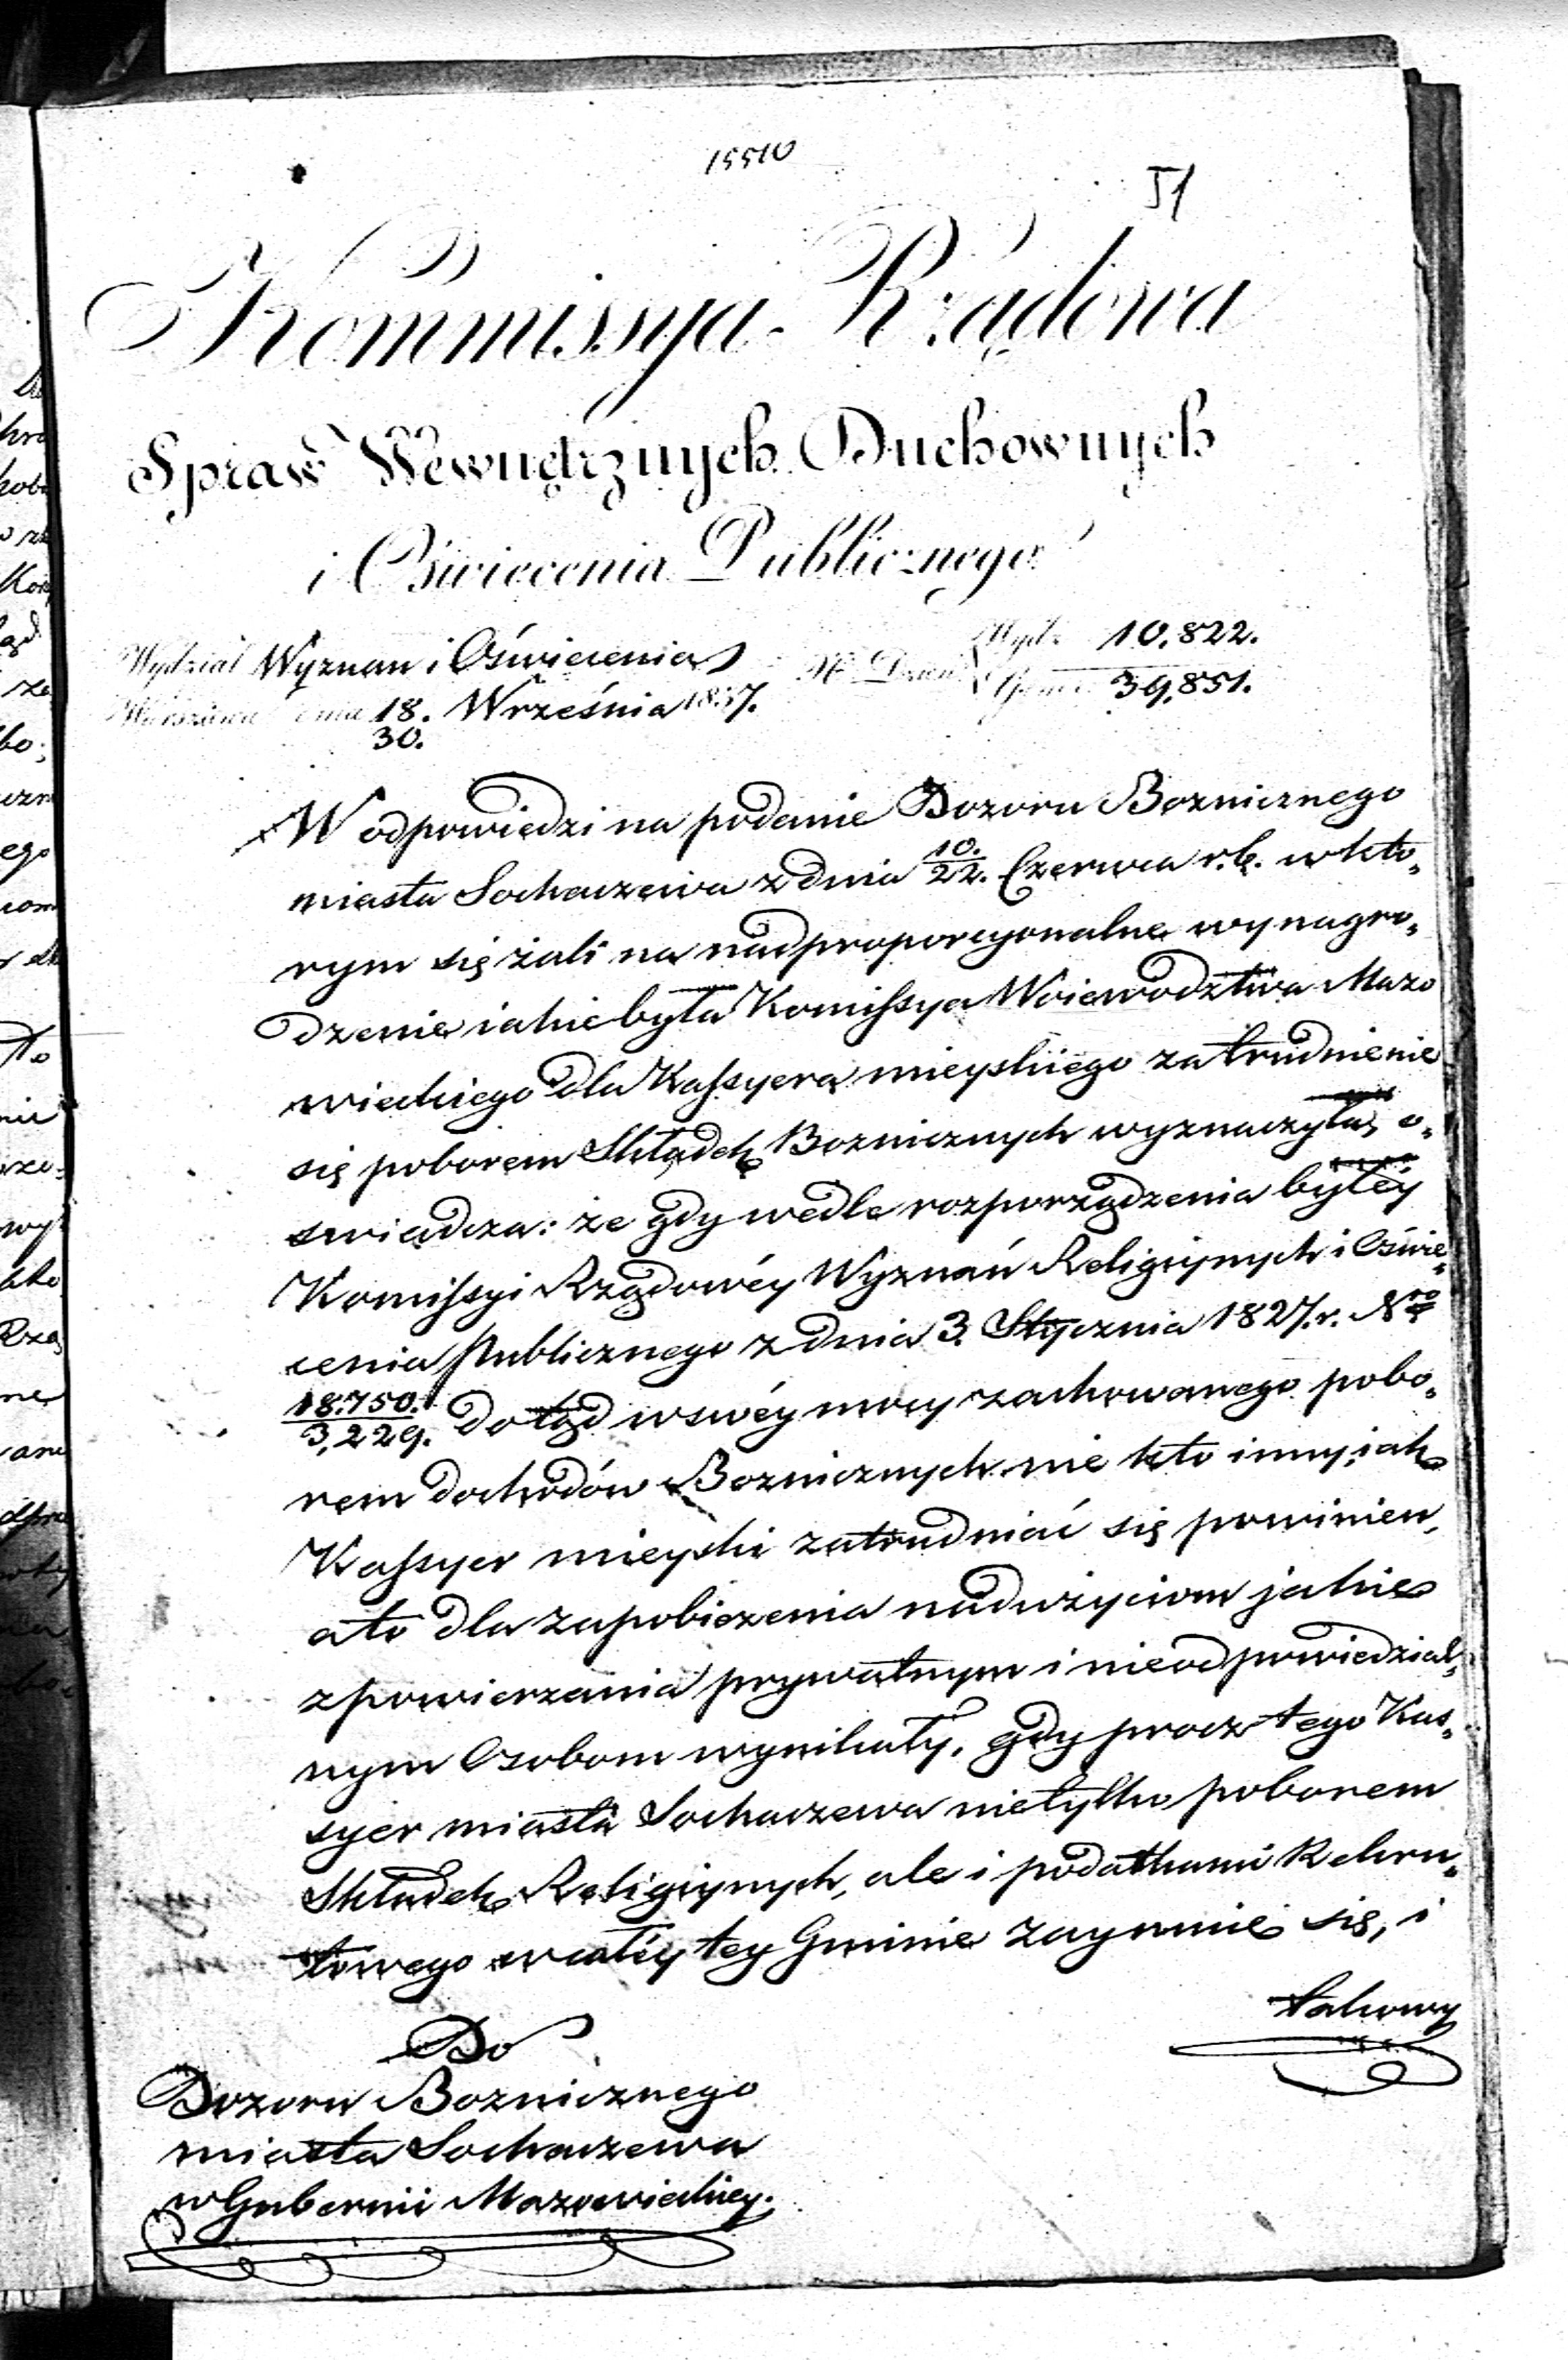 15510
51
Kommissya Rządowa
Spraw Wewnętrznych Duchownych
i Oświecenia Publicznego
Wydział Wyznan i Oświecenia
Wydz 10,822.
N. Dzien
39,851.
Warszawa dnia 18. Września 1837.
30.
W odpowiedzi na podanie Dozoru Boznicznego
miasta Sochaczewa z dnia 10./22. Czerwca r.b. w któ„
rym się żali na nadproporcyonalne wynagro„
dzenie iakie była Komissya Woiewodztwa Mazo
wieckiego dla Kassyera mieyskiego za trudnienie
się poborem Składek Bozniczych wyznaczyła, o„
swiadcza: że gdy wedle rozporządzenia byłéy
Komissyi Rządowéy Wyznań Religiynych i Oświe„
cenia Publicznego z dnia 3. Stycznia 1827. r. Nro
18.750./3,229. dotąd w swéy mocy zachowanego pobo„
rem dochodów Bozniczych nie kto inny, iak
Kassyer mieyski zatrudniać się powinien,
a to dla zapobieżenia nadużyciom jakie
z powierzania prywatnym i nieodpowiedzial„
nym Osobom wynikały, gdy procz tego Kas„
syer miasta Sochaczewa nietylko poborem
Składek Religiynych, ale i podatkami Rekru„
towego w całéy tey Gminie zaymuie się, i
takowy
Do
Dozoru Bozniczego
miasta Sochaczewa
w Gubernii Mazowieckiey.